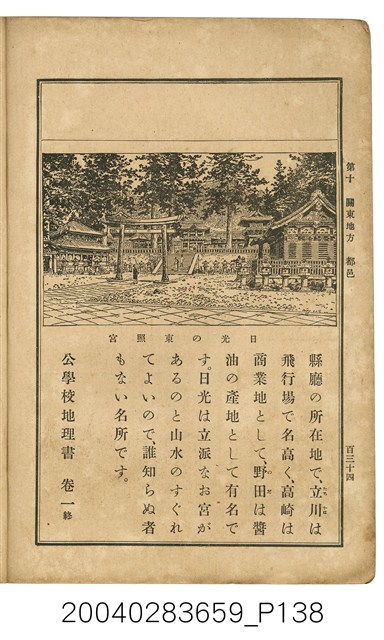 第十 關東地方 都邑
百三十四
日光の東照宮
縣廳の所在地で、立川は
飛行場で名高く、高崎は
商業地として、野田は醬
油の產地として有名で
す。日光は立派なお宮が
あるのと山水のすぐれ
てよいので、誰知らぬ者
もない名所です。
公學校地理書 卷一 終
20040283659_P138